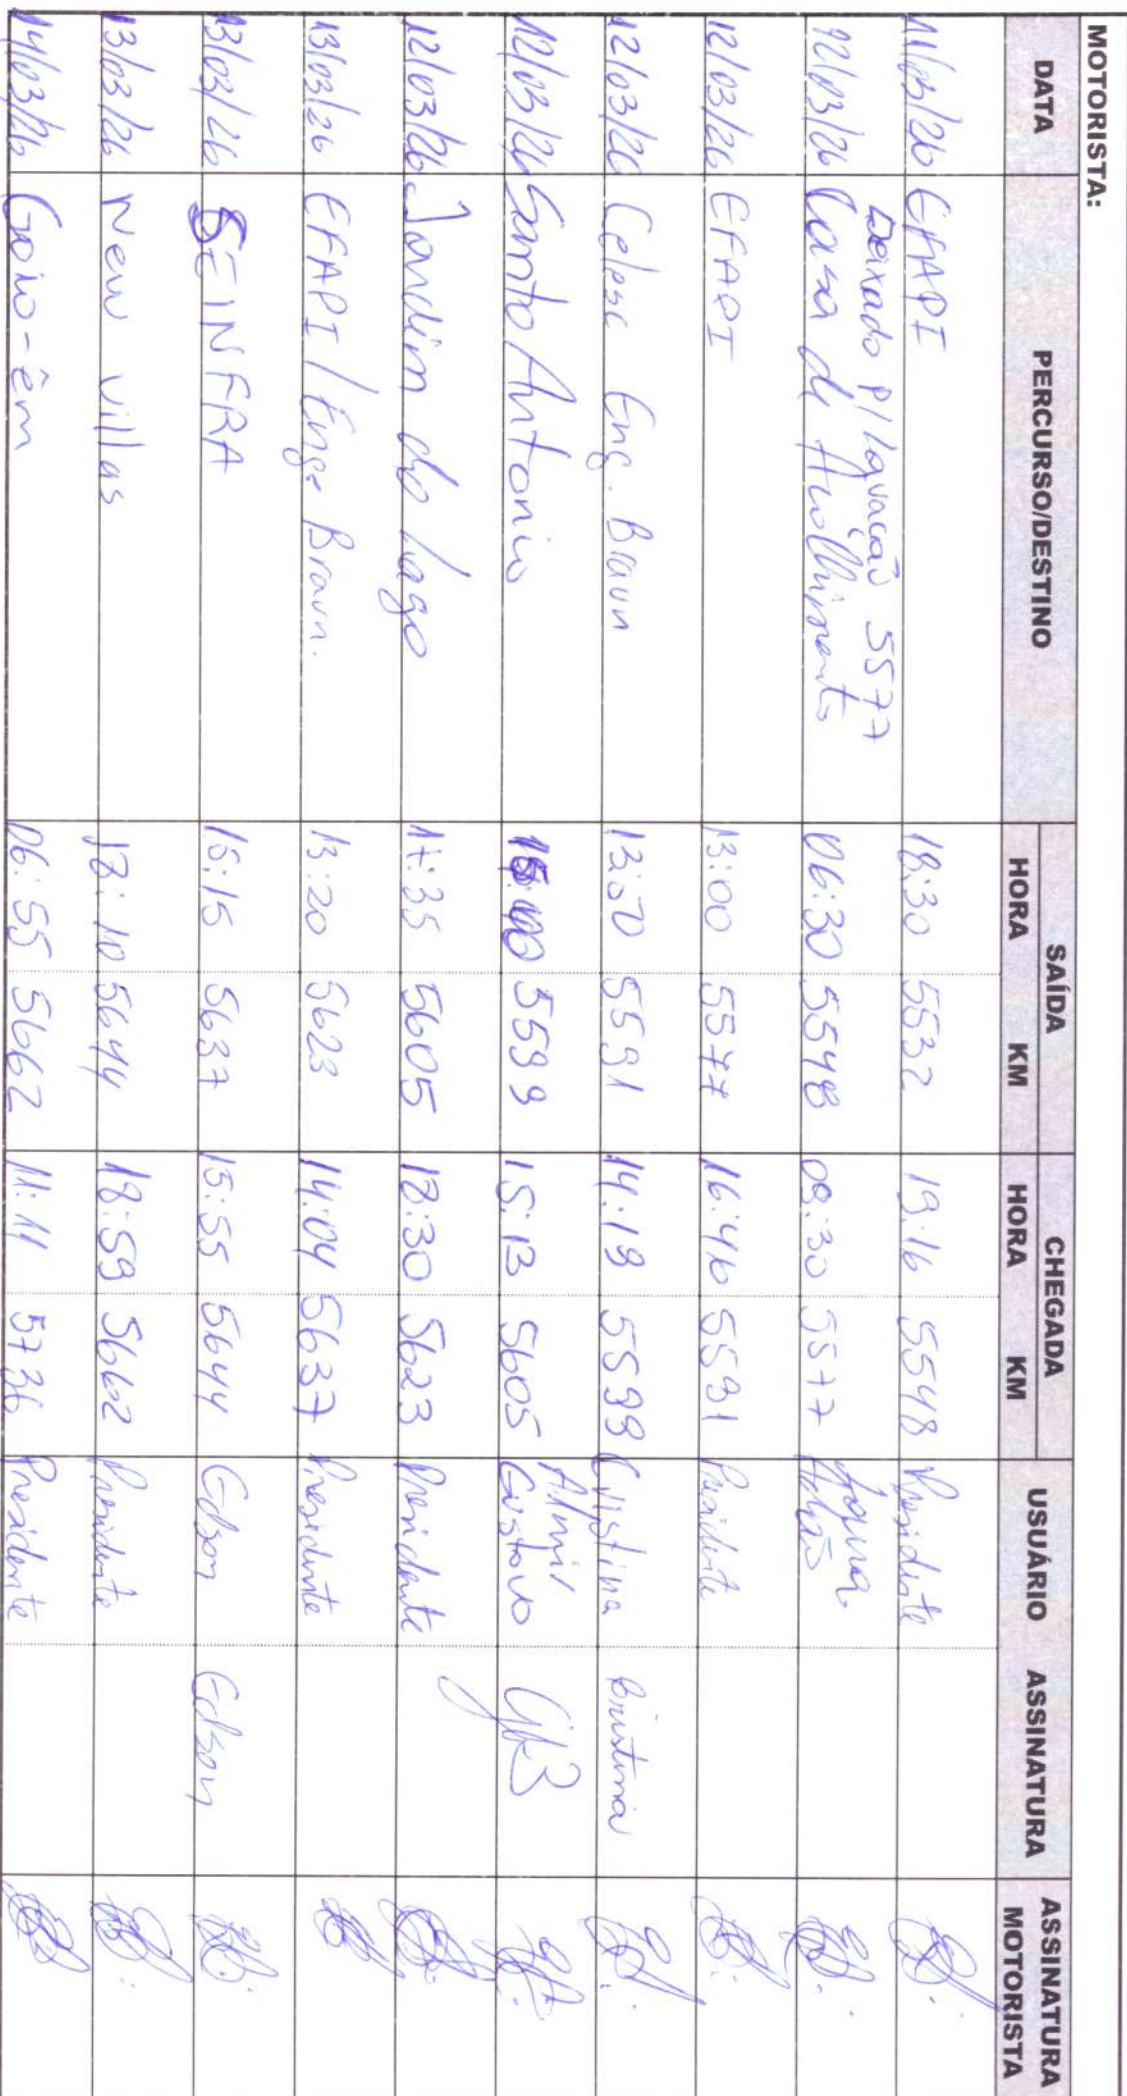 MOTORISTA:
DATA PERCURSO/DESTINO SAÍDA CHEGADA USUÁRIO ASSINATURA ASSINATURA MOTORISTA
HORA KM HORA KM
11/03/26 EFAPI 18:30 5532 19:16 5548 Presidente
Deixado p/ lavação 5577
12/03/26 Casa de Acolhimento 06:30 5548 08:30 5577
12/03/26 EFAPI 13:00 5577 16:46 5591 Presidente
12/03/26 Celesc Eng. Braun 13:50 5591 14:19 5599 Cristina Cristina
12/03/26 Santo Antonio 5599 15:13 5605 Almir Gustavo
12/03/26 Jardim do Lago 17:35 5605 18:30 5623 Presidente
13/03/26 EFAPI / Enge Braun. 13:20 5623 14:04 5637 Presidente
13/03/26 SEINFRA 15:15 5637 15:55 5644 Edson Edson
13/03/26 New Villas 18:10 5644 18:59 5662 Presidente
14/03/26 Goio-êm 06:55 5662 11:11 5736 Presidente